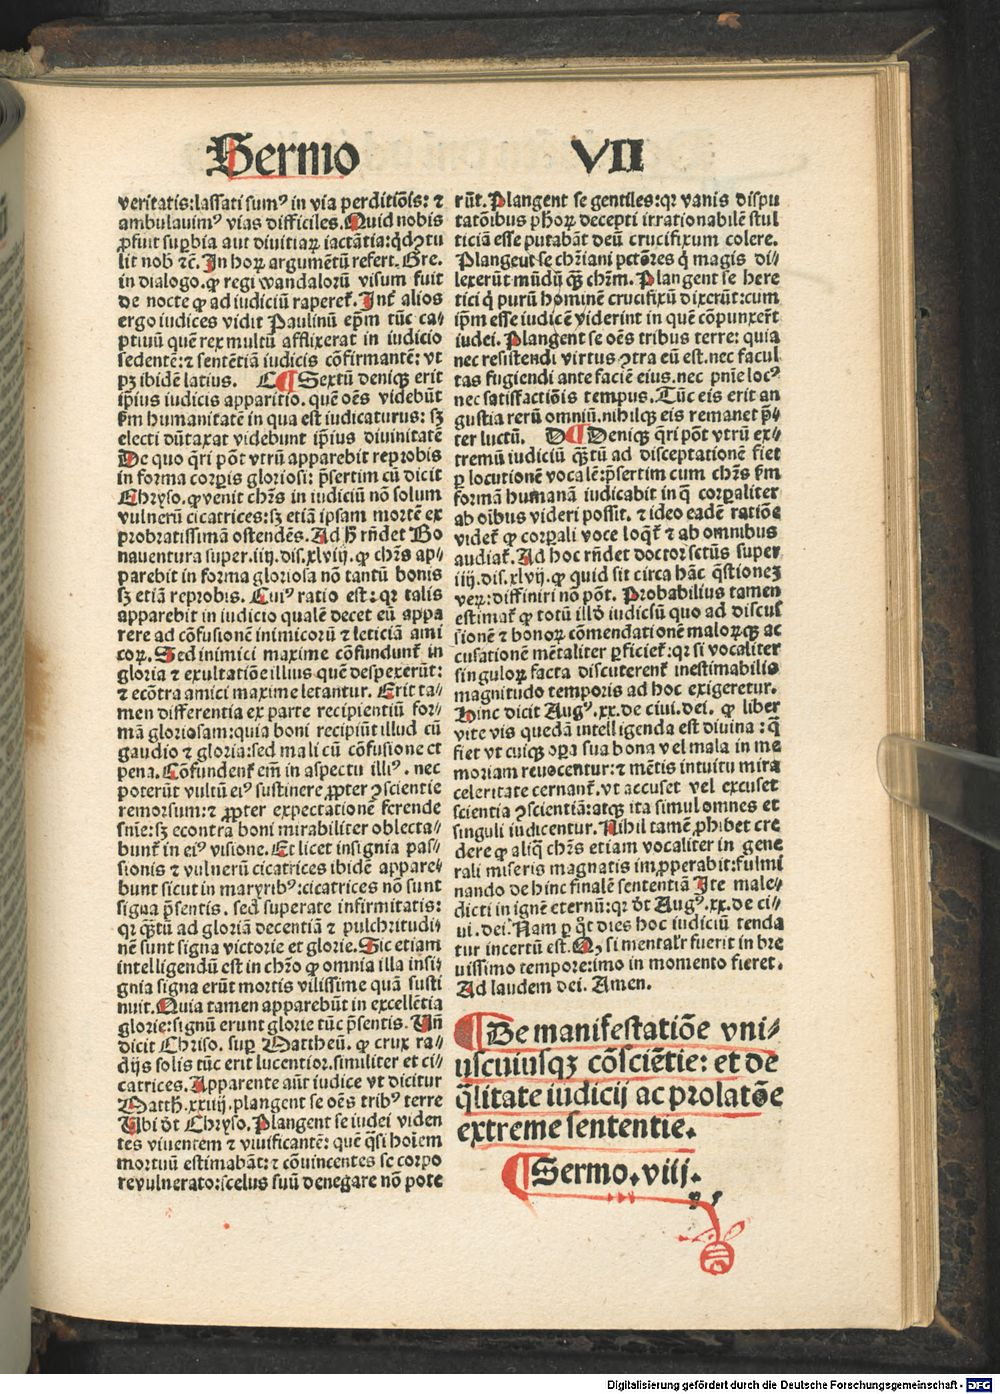 Sermo VII
veritatis:lassati sumꝰ in via perditiōis: ⁊
ambulauimꝰ vias difficiles. Quid nobis
ꝓfuit suꝑbia aut diuitiaꝝ iactātia:qd ꝯtu
lit nob ⁊c̄. In hoꝝ argumētū refert. Gre.
in dialogo. ꝙ regi wandaloꝝ visum fuit
de nocte ꝙ ad iudiciū raperet̄. Int̄ alios
ergo iudices vidit Paulinū ep̄m tūc ca⸗
ptiuū quē rex multū afflixerat in iudicio
sedentē:⁊ sententiā iudicis cōfirmantē: vt
pꝫ ibidē latius. C ¶ Sextū deniqꝫ erit
ip̄ius iudicis apparitio. quē oēs videbūt
ẜm humanitatē in qua est iudicaturus: sꝫ
electi dūtaxat videbunt ip̄ius diuinitatē
De quo q̄ri pōt vtrū apparebit reprobis
in forma corꝑis gloriosi: p̄sertim cū dicit
Chryso. ꝙ venit chr̄s in iudiciū nō solum
vulnerū cicatrices:sꝫ etiā ipsam mortē ex
probratissimā ostendēs. Ad ħ rn̄det Bo
nauentura super.iiij.dis.xlviij. ꝙ chr̄s ap⸗
parebit in forma gloriosa nō tantū bonis
sꝫ etiā reprobis. Cuiꝰ ratio est: qꝛ talis
apparebit in iudicio qualē decet eū appa
rere ad cōfusionē inimicorū ⁊ leticiā ami
coꝝ. Sed inimici maxime cōfundunt̄ in
gloria ⁊ exultatiōe illius quē despexerūt:
⁊ ecōtra amici maxime letantur. Erit ta⸗
men differentia ex parte recipientiū for⸗
mā gloriosam:quia boni recipiūt illud cū
gaudio ⁊ gloria:sed mali cū cōfusione et
pena. Cōfundent̄ em̄ in aspectu illiꝰ. nec
poterūt vultū eiꝰ sustinere ꝓpter ꝯscientie
remorsum:⁊ ꝓpter expectationē ferende
sn̄ie:sꝫ econtra boni mirabiliter oblecta⸗
bunt̄ in eiꝰ visione. Et licet insignia pas⸗
sionis ⁊ vulnerū cicatrices ibidē appare⸗
bunt sicut in maryribꝰ:cicatrices nō sunt
signa p̄sentis. sed superate infirmitatis:
qꝛ qꝫtū ad gloriā decentiā ⁊ pulchritudi⸗
nē sunt signa victorie et glorie. Sic etiam
intelligendū est in chr̄o ꝙ omnia illa insi⸗
gnia signa erūt mortis vilissime quā susti
nuit. Quia tamen apparebūt in excellētia
glorie:signū erunt glorie tūc p̄sentis. Vn̄
dicit Chriso. suꝑ Mattheū. ꝙ crux ra⸗
dijs solis tūc erit lucentior.similiter et ci⸗
catrices. Apparente aūt iudice vt dicitur
Matth̄.xxiiij.plangent se oēs tribꝰ terre
Vbi dt̄ Chryso. Plangent se iudei viden
tes viuentem ⁊ viuificantē: quē q̄si hoīem
mortuū estimabāt:⁊ cōuincentes se corpo
re vulnerato:scelus suū denegare nō pote
rūt. Plangent se gentiles:qꝛ vanis dispu
tatōibus ph̄oꝝ decepti irrationabilē stul
ticiā esse putabāt deū crucifixum colere.
Plangeut se chr̄iani pctōres q̇ magis di⸗
lexerūt mūdū qꝫ chr̄m. Plangent se here
tici q̇ purū hominē crucifixū dixerūt:cum
ip̄m esse iudicē viderint in quē cōpunxert̄
iudei. Plangent se oēs tribus terre: quia
nec resistendi virtus ꝯtra eū est.nec facul
tas fugiendi ante faciē eius.nec pn̄ie locꝰ
nec satisfactiōis tempus. Tūc eis erit an
gustia rerū omniū.nihilqꝫ eis remanet p̄⸗
ter luctū. D ¶ Deniqꝫ q̄ri pōt vtrū ex⸗
tremū iudiciū qꝫtū ad disceptationē fiet
ꝑ locutionē vocalē:p̄sertim cum chr̄s ẜm
formā humanā iudicabit in q̄ corꝑaliter
ab oībus videri possit. ⁊ ideo eadē ratiōe
videt̄ ꝙ corꝑali voce loqt̄ ⁊ ab omnibus
audiat̄. Ad hoc rn̄det doctor sctūs super
iiij.dis.xlvij. ꝙ quid sit circa hāc q̄stioneꝫ
veꝝ:diffiniri nō pōt. Probabilius tamen
estimat̄ ꝙ totū illd̓ iudicsū quo ad discus
sionē ⁊ bonoꝝ cōmendationē maloꝝqꝫ ac
cusationē mētaliter ꝑficiet̄:qꝛ si vocaliter
singuloꝝ facta discuterent̄ inestimabilis
magnitudo temporis ad hoc exigeretur.
Hinc dicit Augꝰ.xx.de ciui.dei. ꝙ liber
vite vis quedā intelligenda est diuina : q̄
fiet vt cuiqꝫ oꝑa sua bona vel mala in me
moriam reuocentur:⁊ mētis intuitu mira
celeritate cernant̄.vt accuset vel excuset
scientia ꝯscientiā:atqꝫ ita simul omnes et
singuli iudicentur. Nihil tamē ꝓhibet cre
dere ꝙ aliq̄ chr̄s etiam vocaliter in gene
rali miseris magnatis imꝓperabit:fulmi
nando dehinc finalē sententiā Ite male⸗
dicti in ignē eternū:qꝛ dt̄ Augꝰ.xx.de ci⸗
ui.dei. Nam ꝑ q̇t dies hoc iudiciū tenda
tur incertū est. Qꝫ si mentalr̄ fuerit in bre
uissimo tempore:imo in momento fieret.
Ad laudem dei. Amen.
¶ De manifestatiōe vni⸗
uscuiusqꝫ cōsciētie: et de
q̄litate iudicij ac prolatōe
extreme sententie.
¶ Sermo.viij.